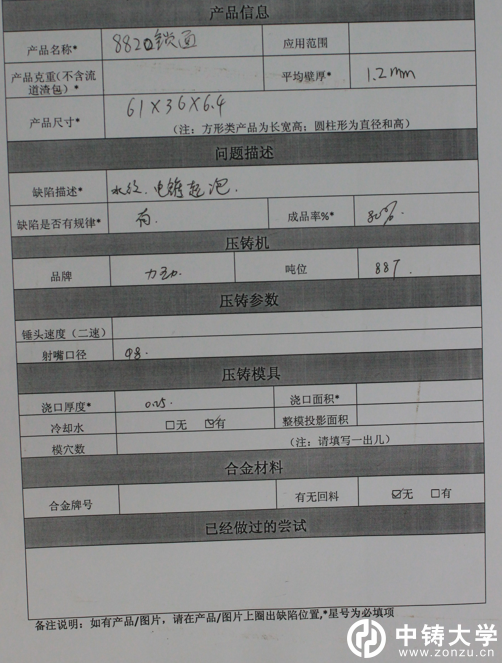 产品信息
产品名称* 8820锁面 应用范围
产品克重(不含流道渣包)* 平均壁厚* 1.2mm
产品尺寸* 61X36X6.4
(注:方形类产品为长宽高;圆柱形为直径和高)
问题描述
缺陷描述* 水纹、电铸起泡.
缺陷是否有规律* 有. 成品率%* 80%.
压铸机
品牌 力劲. 吨位 88T.
压铸参数
锤头速度(二速)
射嘴口径 98.
压铸模具
浇口厚度* 0.25. 浇口面积*
冷却水 □无 ☑有 整模投影面积
模穴数 (注:请填写一出几)
合金材料
合金牌号 有无回料 ☑无 □有
已经做过的尝试
备注说明:如有产品/图片,请在产品/图片上圈出缺陷位置,*星号为必填项
中铸大学
www.zonzu.cn